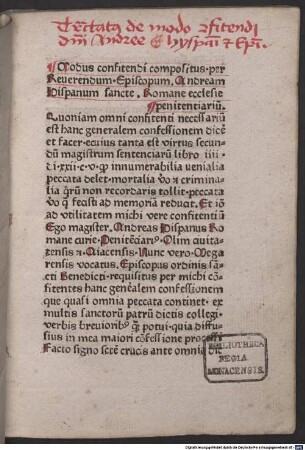 Tractatus de modo ꝯfitendi
dn̄i Andree hyspani & Ep̄i.
Modus confitendi compositus. per
Reuerendum. Episcopum. Andream
Hispanum sancte. Romane ecclesie
penitentiariū.
Quoniam omni confitenti necessariū
est hanc generalem confessionem dicē
et facer ecuius tanta est virtus secun-
dū magistrum sentenciarū libro iiii.
di. xxi. c. v. ꝙ innumerabilia venialia
peccata delet. moralia ꝟo & crimina-
lia q̄rū non recordaris tollit. peccata
ꝟo q̄ fecist ad memoriā reducit. Et iō
ad vtilitatem michi vere confitentiū
Ego magister. Andreas Hispanus Ro
mane curie. Penitēciariꝰ. Olim ciuita-
gensis & Aiacensis. Nunc vero Mega-
rensis vocatus. Episcopus ordinis sā-
cti Benedicti. requisitus per michi cō-
fitentes hanc genēalem confessionem
que quasi omnia peccata continet. ex
multis sanctorū patrū dictis collegi.
verbis breuionibꝰ q̄ potui. quia diffu-
sius in mea maiori cōfessione processi
Facto signo sctē crucis ante omnia dic
BIBLIOTHECA
REGIA
MONACENSIS.